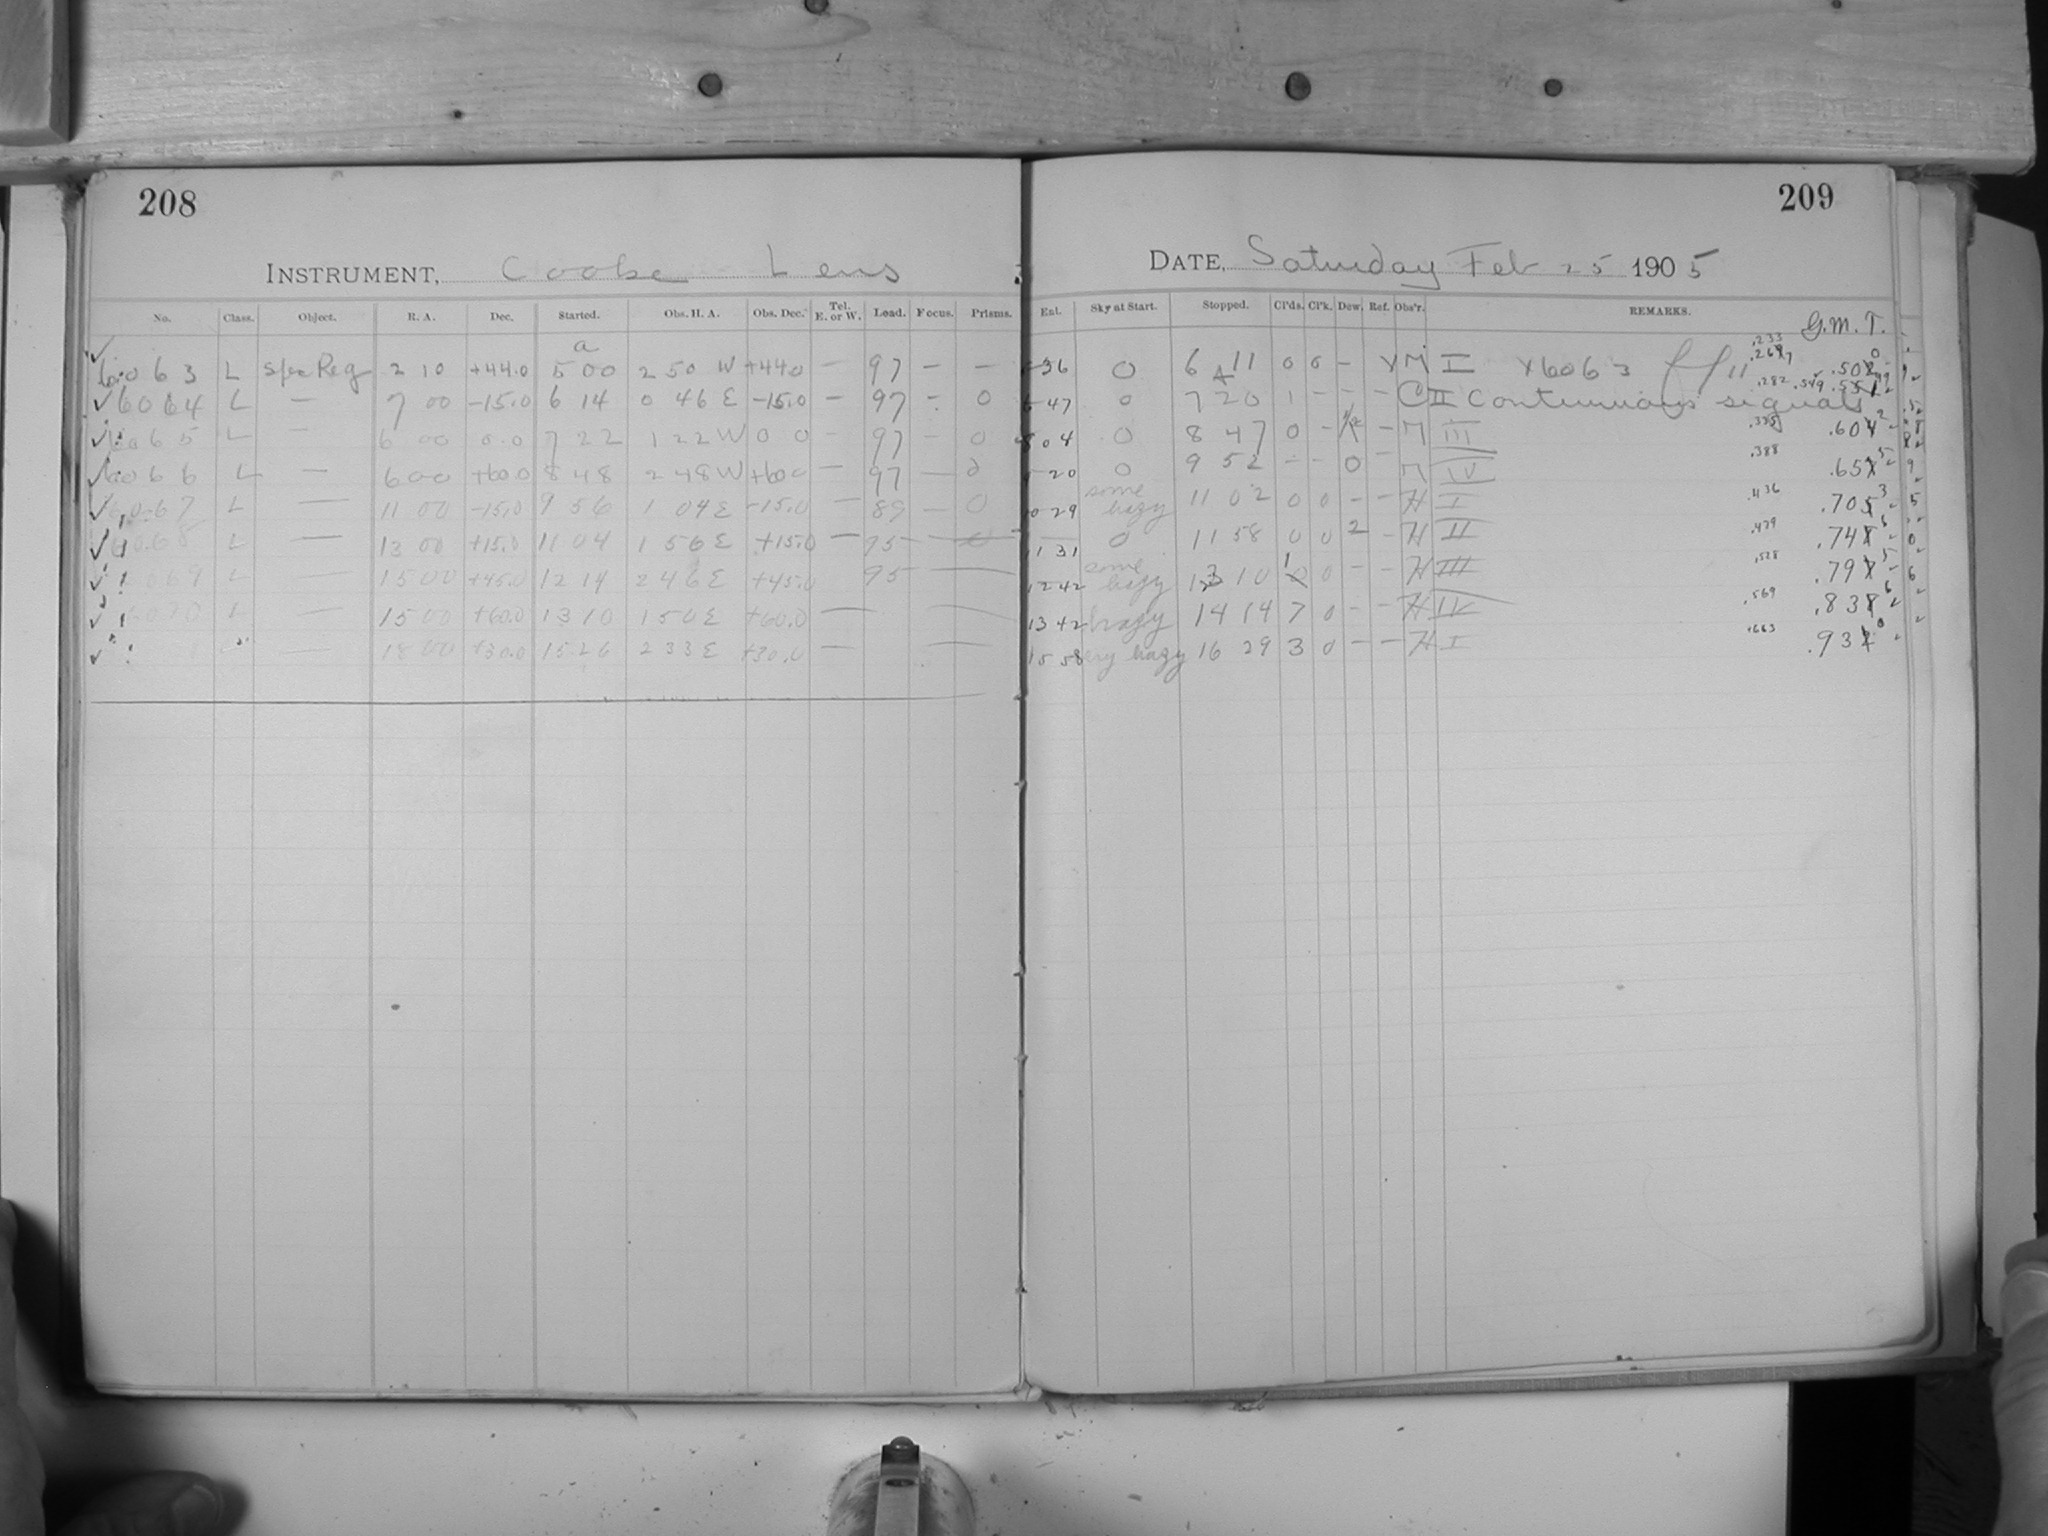 208
INSTRUMENT, Cooke Lens
No. Class. Object. R. A. Dec. Started. Obs. H. A. Obs. Dec. Tel. E. or W. Lead. Focus. Prisms.
a
6063 L Spec Reg 2 10 +44.0 5 00 2 50 W +44.0 — 97 — —
✓ 6064 L — 7 00 -15.0 6 14 0 46 E -15.0 — 97 - 0
✓ 6065 L — 6 00 0.0 7 22 1 22 W 0 0 — 97 - 0
✓ 6066 L — 6 00 +60.0 8 48 2 48 W +60.0 — 97 — 0
✓ 6067 L — 11 00 -15.0 9 56 1 04 E -15.0 — 89 — 0
✓ 6068 L — 13 00 +15.0 11 04 1 56 E +15.0 — 95 —
✓ 6069 L — 15 00 +45.0 12 14 2 46 E +45.0 95 —
✓ 6070 L — 15 00 +60.0 13 10 1 50 E +60.0 —
✓ — 18 00 +30.0 15 26 2 33 E +30.0 — —
209
DATE, Saturday Feb 25 1905
Ent. Sky at Start. Stopped. Cl'ds. Cl'k. Dew. Ref. Obs'r. REMARKS.
G.M.T.
36 0 6 11 0 0 - M I 6063
47 0 7 20 1 - - - C II Continuous signals
8 04 0 8 47 0 - - M III .335 .604
20 0 9 52 - - 0 M IV .388 .65
10 29 some hazy 11 02 0 0 - - H I .436 .70
11 31 0 11 58 0 0 2 - H II .479 .74
12 42 some hazy 13 10 1 0 - - H III .528 .79
13 42 hazy 14 14 7 0 - - H IV .569 .83
15 58 very hazy 16 29 3 0 - - H I .663 .93